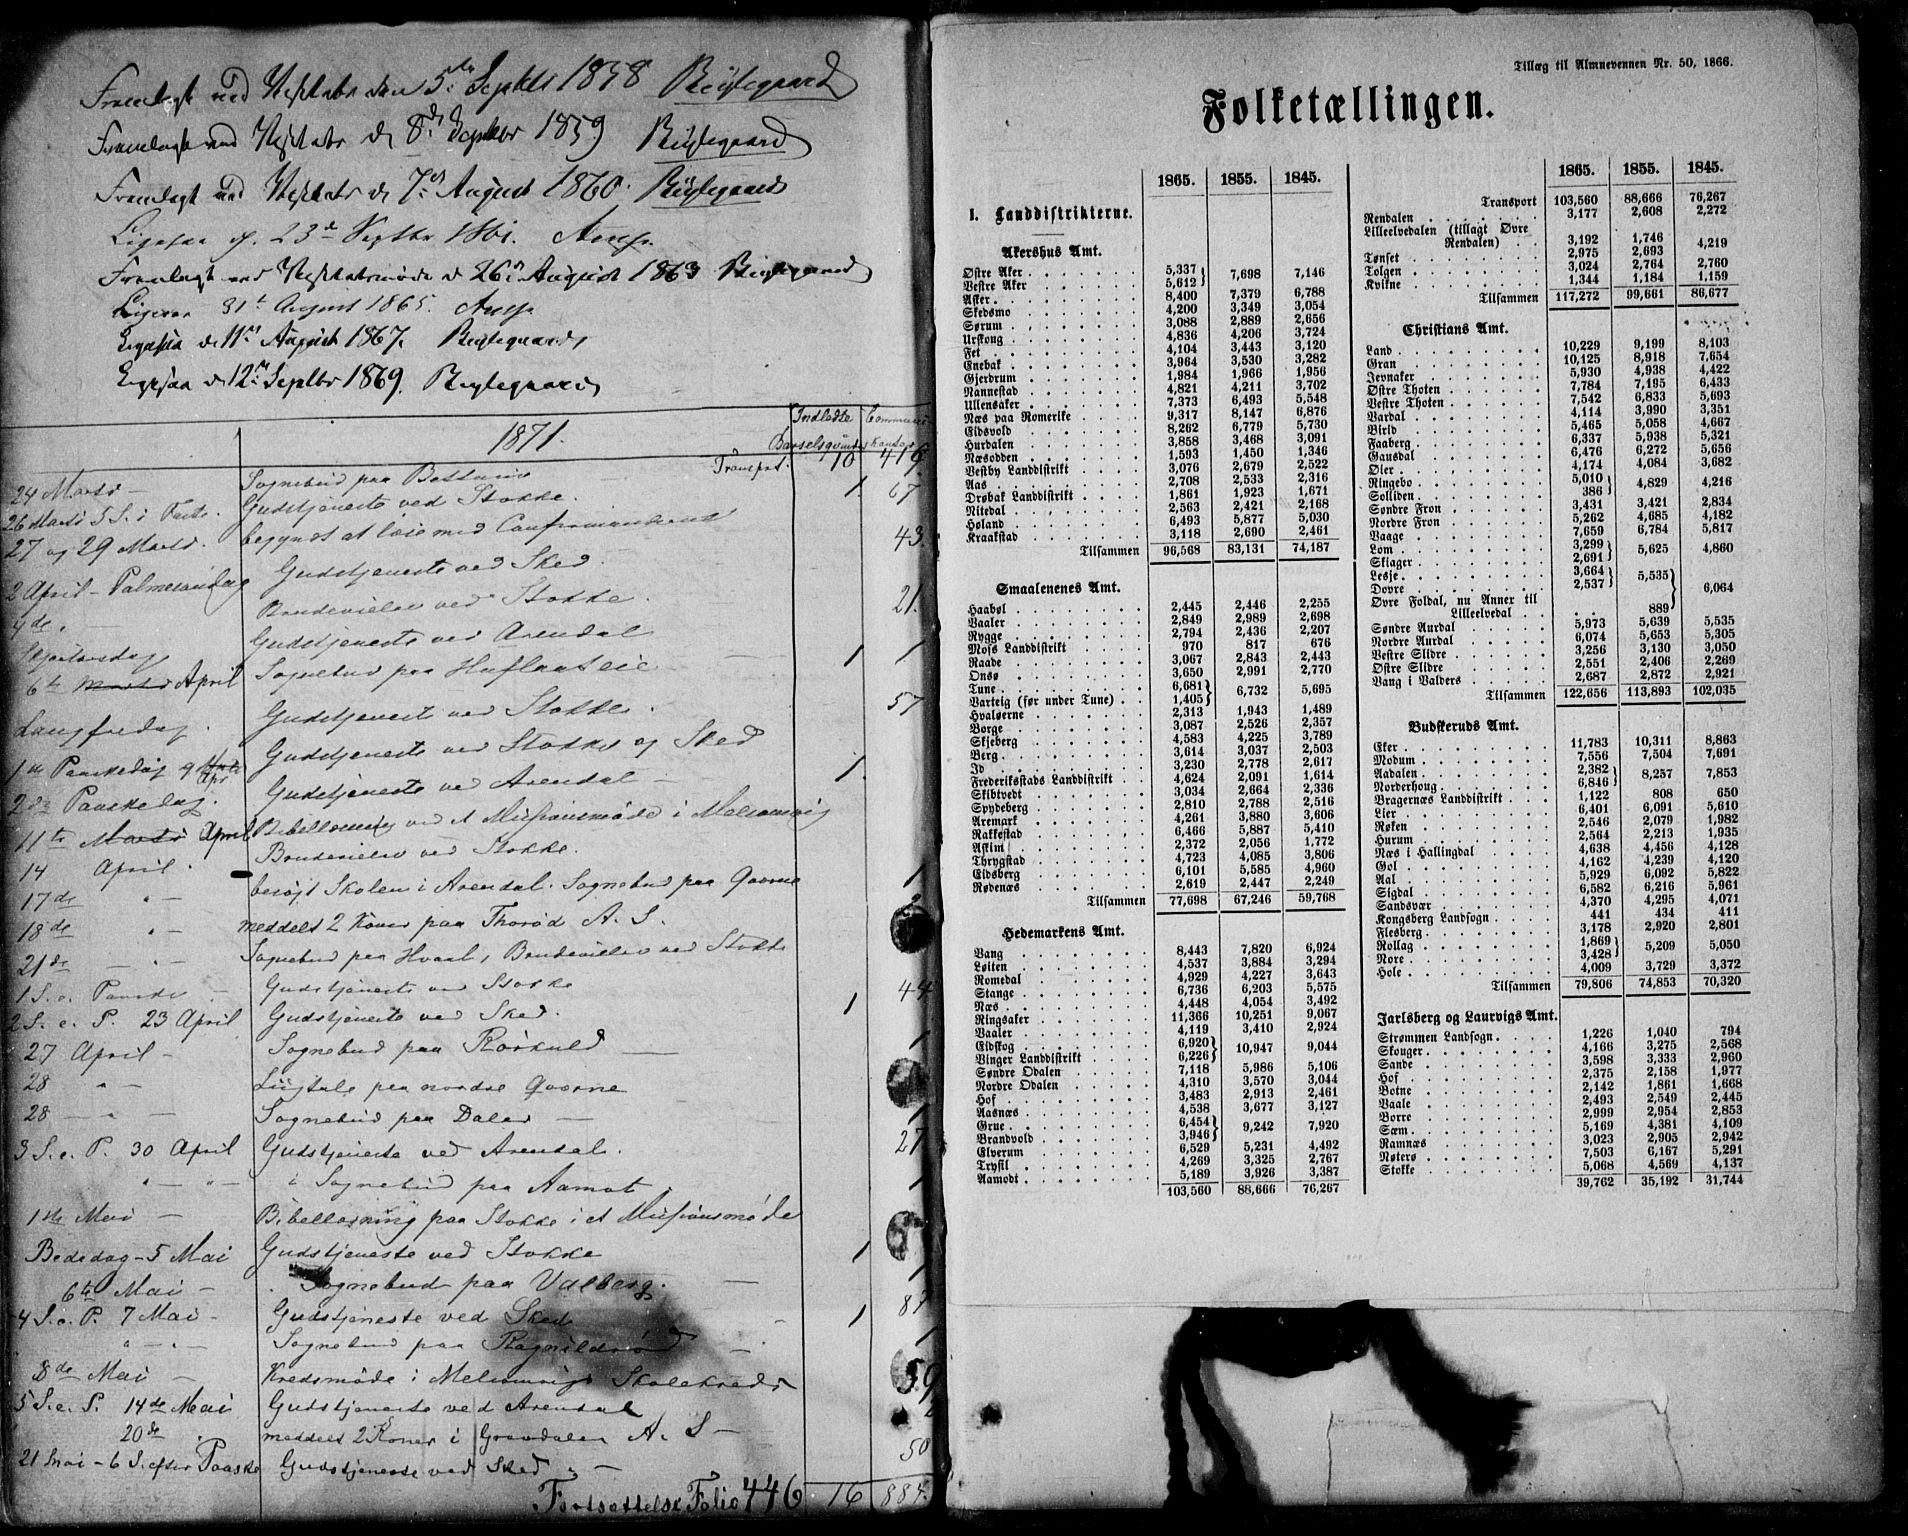 Fremlagt ved Visitats den 5te Septbr 1858
Fremlagt ved Visitats d 8de Septbr 1859
Fremlagt ved Visitats d 7de August 1860
Ligesaa d. 23de Septbr 1861. Arup.
Fremlagt ved Visitatsmøde d 26de August 1863
Ligesaa 31te August 1865. Arup
Ligesaa d 11te August 1867.
Ligesaa d 12te Septbr 1869.
Indledte Barselqvinder
1871.
Transpt. 10 416
24 Marts — Sognebud paa
26 Marts 5 S. i Faste. Gudstjeneste ved Stokke. 1. 67
27 og 29 Marts. begyndt at læse med Confirmanderne
2 April - Palmesøndag Gudstjeneste ved Sked. 43.
4de. — Brudevielse ved Stokke.
Skjertorsdag Gudstjeneste ved Arendal 21.
6te April Sognebud paa 1 1
Langfredag. Gudstjeneste ved Stokke. 57
1ste Paaskedag 9 Apr. Gudstjeneste ved Stokke og Sked
2den Paaskedag. Gudstjeneste ved Arendal — 1.
11te April Bibellæsning ved et Missionsmøde i Melsomvig
14 April. Brudevielse ved Stokke.
17de " — besøgt Skolen i Arendal. Sognebud paa Gvorne 1
18de " — meddelt 2 Koner paa Thorød A. S. 2
21de — " — Sognebud paa Hvaal, Brudevielse ved Stokke
1 S. e. Paaske — Gudstjeneste ved Stokke 44
2 S. e. P. 23 April Gudstjeneste ved Sked. 1
27 April — Sognebud paa Rørkuld — 1
28 " — Liigtale paa nordre Gvorne
28 — " — Sognebud paa Dalen — 1
3 S. e. P. 30 April Gudstjeneste ved Arendal. 27
" — " — i Sognebud paa Aamot. 1
1ste Mai — Bibellæsning paa Stokke i et Missionsmøde
Bededag - 5 Mai Gudstjeneste ved Stokke 1
6te Mai — Sognebud paa Valberg. — 1
4 S. e. P. 7 Mai - Gudstjeneste ved Sked 1 87
" — " - Sognebud paa Ragnildrød — 1
8de Mai — Kredsmøde i Melsomvigs Skolekreds
5 S. e. P. 14de Mai Gudstjeneste ved Arendal 59
20de " meddelt 2 Koner i Gravdalen A. S — 2
21 Mai - 6 S. efter Paaske Gudstjeneste ved Sked — 50
Fortsættelse Folio 446 16 884.
Tillæg til Almuevennen Nr. 50, 1866.
Folketællingen.
1865. 1855. 1845.
1. Landdistrikterne.
Akershus Amt.
Østre Aker 5,337 7,698 7,146
Vestre Aker 5,612
Asker 8,400 7,379 6,788
Skedsmo 4,200 3,349 3,054
Sørum 3,088 2,889 2,656
Urskoug 4,836 4,206 3,724
Fet 4,104 3,443 3,120
Enebak 3,964 3,530 3,282
Gjerdrum 1,984 1,966 1,956
Nannestad 4,821 4,211 3,702
Ullensaker 7,373 6,493 5,548
Næs paa Romerike 9,317 8,147 6,876
Eidsvold 8,262 6,779 5,730
Hurdalen 3,858 3,468 3,091
Næsodden 1,593 1,450 1,346
Vestby Landdistrikt 3,076 2,679 2,522
Aas 2,708 2,533 2,316
Drøbak Landdistrikt 1,861 1,923 1,671
Nitedal 2,563 2,421 2,168
Høland 6,493 5,877 5,030
Kraakstad 3,118 2,690 2,461
Tilsammen 96,568 83,131 74,187
Smaalenenes Amt.
Haabøl 2,445 2,446 2,255
Vaaler 2,849 2,989 2,698
Rygge 2,794 2,436 2,207
Moss Landdistrikt 970 817 676
Raade 3,067 2,843 2,443
Onsø 3,650 2,991 2,770
Tune 6,681 6,732 5,695
Varteig (før under Tune) 1,405
Hvaløerne 2,313 1,943 1,489
Borge 3,087 2,526 2,357
Skjeberg 4,583 4,225 3,789
Berg 3,614 3,037 2,503
Id 3,230 2,778 2,617
Frederiksstads Landdistrikt 4,624 2,091 1,614
Skibtvedt 3,034 2,664 2,336
Spydeberg 2,810 2,788 2,516
Aremark 4,261 3,880 3,606
Rakkestad 6,466 5,887 5,410
Askim 2,372 2,056 1,772
Thrygstad 4,723 4,085 3,806
Eidsberg 6,101 5,585 4,960
Rødenæs 2,619 2,447 2,249
Tilsammen 77,698 67,246 59,768
Hedemarkens Amt.
Vang 8,443 7,820 6,924
Løiten 4,537 3,884 3,294
Romedal 4,929 4,227 3,643
Stange 6,736 6,203 5,575
Næs 4,448 4,054 3,492
Ringsaker 11,366 10,251 9,067
Vaaler 4,119 3,410 2,924
Eidskog 6,920 10,947 9,044
Vinger Landdistrikt 6,226
Søndre Odalen 7,118 5,986 5,106
Nordre Odalen 4,310 3,570 3,044
Hof 3,483 2,913 2,461
Aasnæs 4,538 3,677 3,127
Grue 6,454 9,242 7,920
Brandvold 3,946
Elverum 6,529 5,231 4,492
Trysil 4,269 3,325 2,767
Aamodt 5,189 3,926 3,387
103,560 88,666 76,267
1865. 1855. 1845.
Transport 103,560 88,666 76,267
Rendalen 3,177 2,608 2,272
Lilleelvedalen (tillagt Øvre
Rendalen) 3,192 1,746 4,219
Tønset 2,975 2,693
Tolgen 3,024 2,764 2,760
Kvikne 1,344 1,184 1,159
Tilsammen 117,272 99,661 86,677
Christians Amt.
Land 10,229 9,199 8,103
Gran 10,125 8,918 7,654
Jevnaker 5,930 4,938 4,422
Østre Thoten 7,784 7,195 6,433
Vestre Thoten 7,542 6,833 5,693
Vardal 4,114 3,990 3,351
Birid 5,465 5,058 4,667
Faaberg 6,337 5,938 5,321
Gausdal 6,476 6,272 5,656
Øier 4,174 4,084 3,682
Ringebo 5,010 4,829 4,216
Solliden 386
Søndre Fron 3,431 3,421 2,834
Nordre Fron 5,262 4,685 4,182
Vaage 7,659 6,784 5,817
Lom 3,299 5,625 4,860
Skiager 2,691
Lesje 3,664 5,535 6,064
Dovre 2,537
Øvre Foldal, nu Annex til
Lilleelvedal 889
Søndre Aurdal 5,973 5,639 5,535
Nordre Aurdal 6,074 5,653 5,305
Vestre Slidre 3,256 3,130 3,050
Østre Slidre 2,551 2,406 2,269
Vang i Valders 2,687 2,872 2,921
Tilsammen 122,656 113,893 102,035
Budskeruds Amt.
Eker 11,783 10,311 8,863
Modum 7,556 7,504 7,691
Aadalen 2,382 8,257 7,853
Norderhoug 6,846
Bragernæs Landdistrikt 1,122 808 650
Lier 6,401 6,091 5,610
Røken 2,546 2,079 1,982
Hurum 2,564 2,213 1,935
Næs i Hallingdal 4,638 4,456 4,128
Gol 4,162 4,239 4,120
Aal 5,929 6,092 5,822
Sigdal 6,582 6,216 5,961
Sandsvær 4,370 4,295 4,071
Kongsberg Landsogn 441 434 411
Flesberg 3,178 2,920 2,801
Rollag 1,869 5,209 5,050
Nore 3,428
Hole 4,009 3,729 3,372
Tilsammen 79,806 74,853 70,320
Jarlsberg og Laurvigs Amt.
Strømmen Landsogn 1,226 1,040 794
Skouger 4,166 3,275 2,568
Sande 3,598 3,333 2,960
Hof 2,375 2,158 1,977
Botne 2,142 1,861 1,668
Vaale 2,493 2,549 2,445
Borre 2,999 2,954 2,853
Sæm 5,169 4,381 4,109
Ramnæs 3,023 2,905 2,942
Nøterø 7,503 6,167 5,291
Stokke 5,068 4,569 4,137
39,762 35,192 31,744